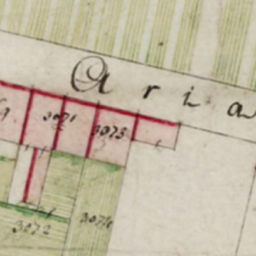 Aria
3071
3073
3072
3074